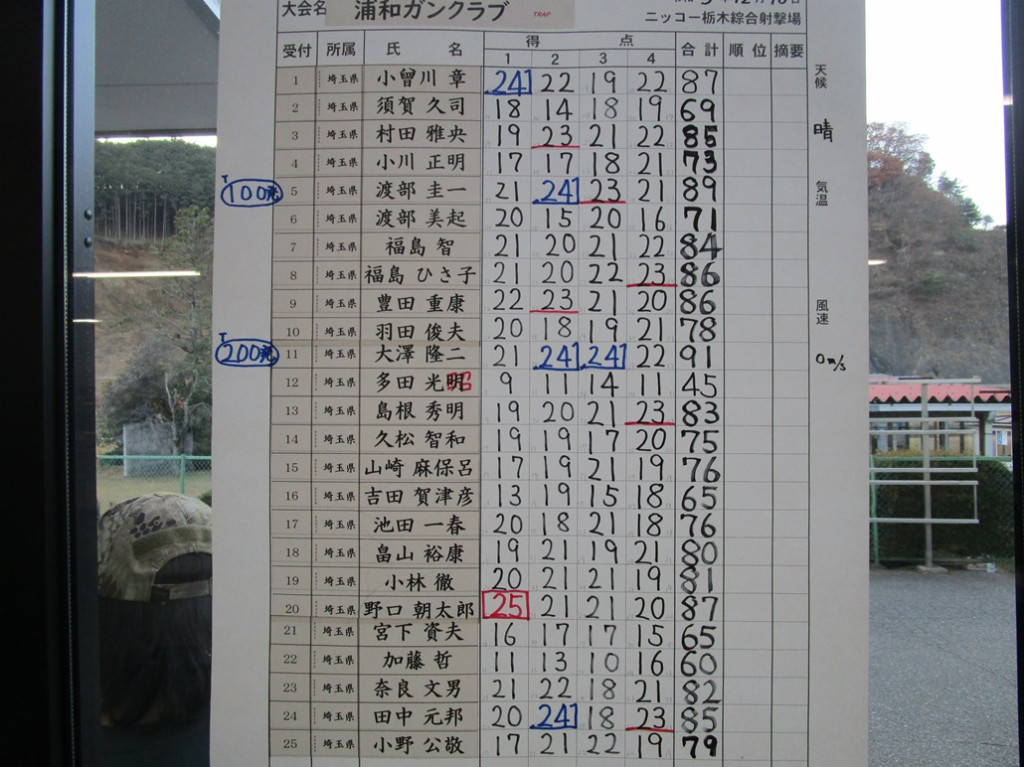 大会名 浦和ガンクラブ TRAP
ニッコー栃木綜合射撃場
受付 所属 氏 名 得 点 合計 順位 摘要
1 2 3 4
1 埼玉県 小曾川 章 24 22 19 22 87
2 埼玉県 須賀 久司 18 14 18 19 69
3 埼玉県 村田 雅央 19 23 21 22 85
4 埼玉県 小川 正明 17 17 18 21 73
T100兆 5 埼玉県 渡部 圭一 21 24 23 21 89
6 埼玉県 渡部 美起 20 15 20 16 71
7 埼玉県 福島 智 21 20 21 22 84
8 埼玉県 福島 ひさ子 21 20 22 23 86
9 埼玉県 豊田 重康 22 23 21 20 86
10 埼玉県 羽田 俊夫 20 18 19 21 78
T200兆 11 埼玉県 大澤 隆二 21 24 24 22 91
12 埼玉県 多田 光昭 9 11 14 11 45
13 埼玉県 島根 秀明 19 20 21 23 83
14 埼玉県 久松 智和 19 19 17 20 75
15 埼玉県 山崎 麻保呂 17 19 21 19 76
16 埼玉県 吉田 賀津彦 13 19 15 18 65
17 埼玉県 池田 一春 20 18 21 18 76
18 埼玉県 畠山 裕康 19 21 19 21 80
19 埼玉県 小林 徹 20 21 21 19 81
20 埼玉県 野口 朝太郎 25 21 21 20 87
21 埼玉県 宮下 資夫 16 17 17 15 65
22 埼玉県 加藤 哲 11 13 10 16 60
23 埼玉県 奈良 文男 21 22 18 21 82
24 埼玉県 田中 元邦 20 24 18 23 85
25 埼玉県 小野 公敬 17 21 22 19 79
天候
晴
気温
風速
0m/s